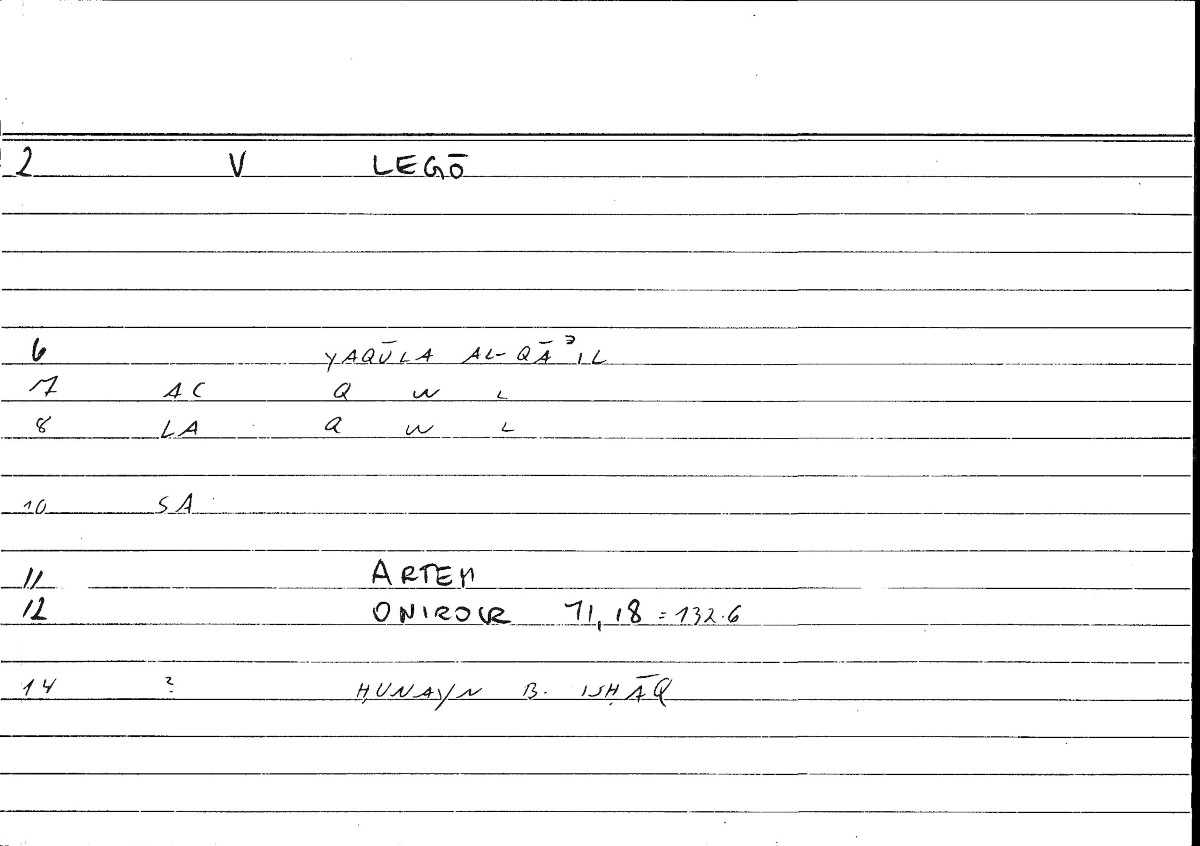 2 V LEGŌ
6 YAQŪLA AL-QĀʾIL
7 AC Q W L
8 LA Q W L
10 SA
11 ARTEM
12 ONIROCR 71,18 = 132.6
14 ? ḤUNAYN B. ISḤĀQ